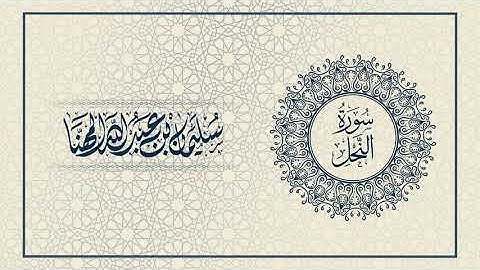 سُورَةُ
النَّحْل
سليمان بن عبد الله المهنا